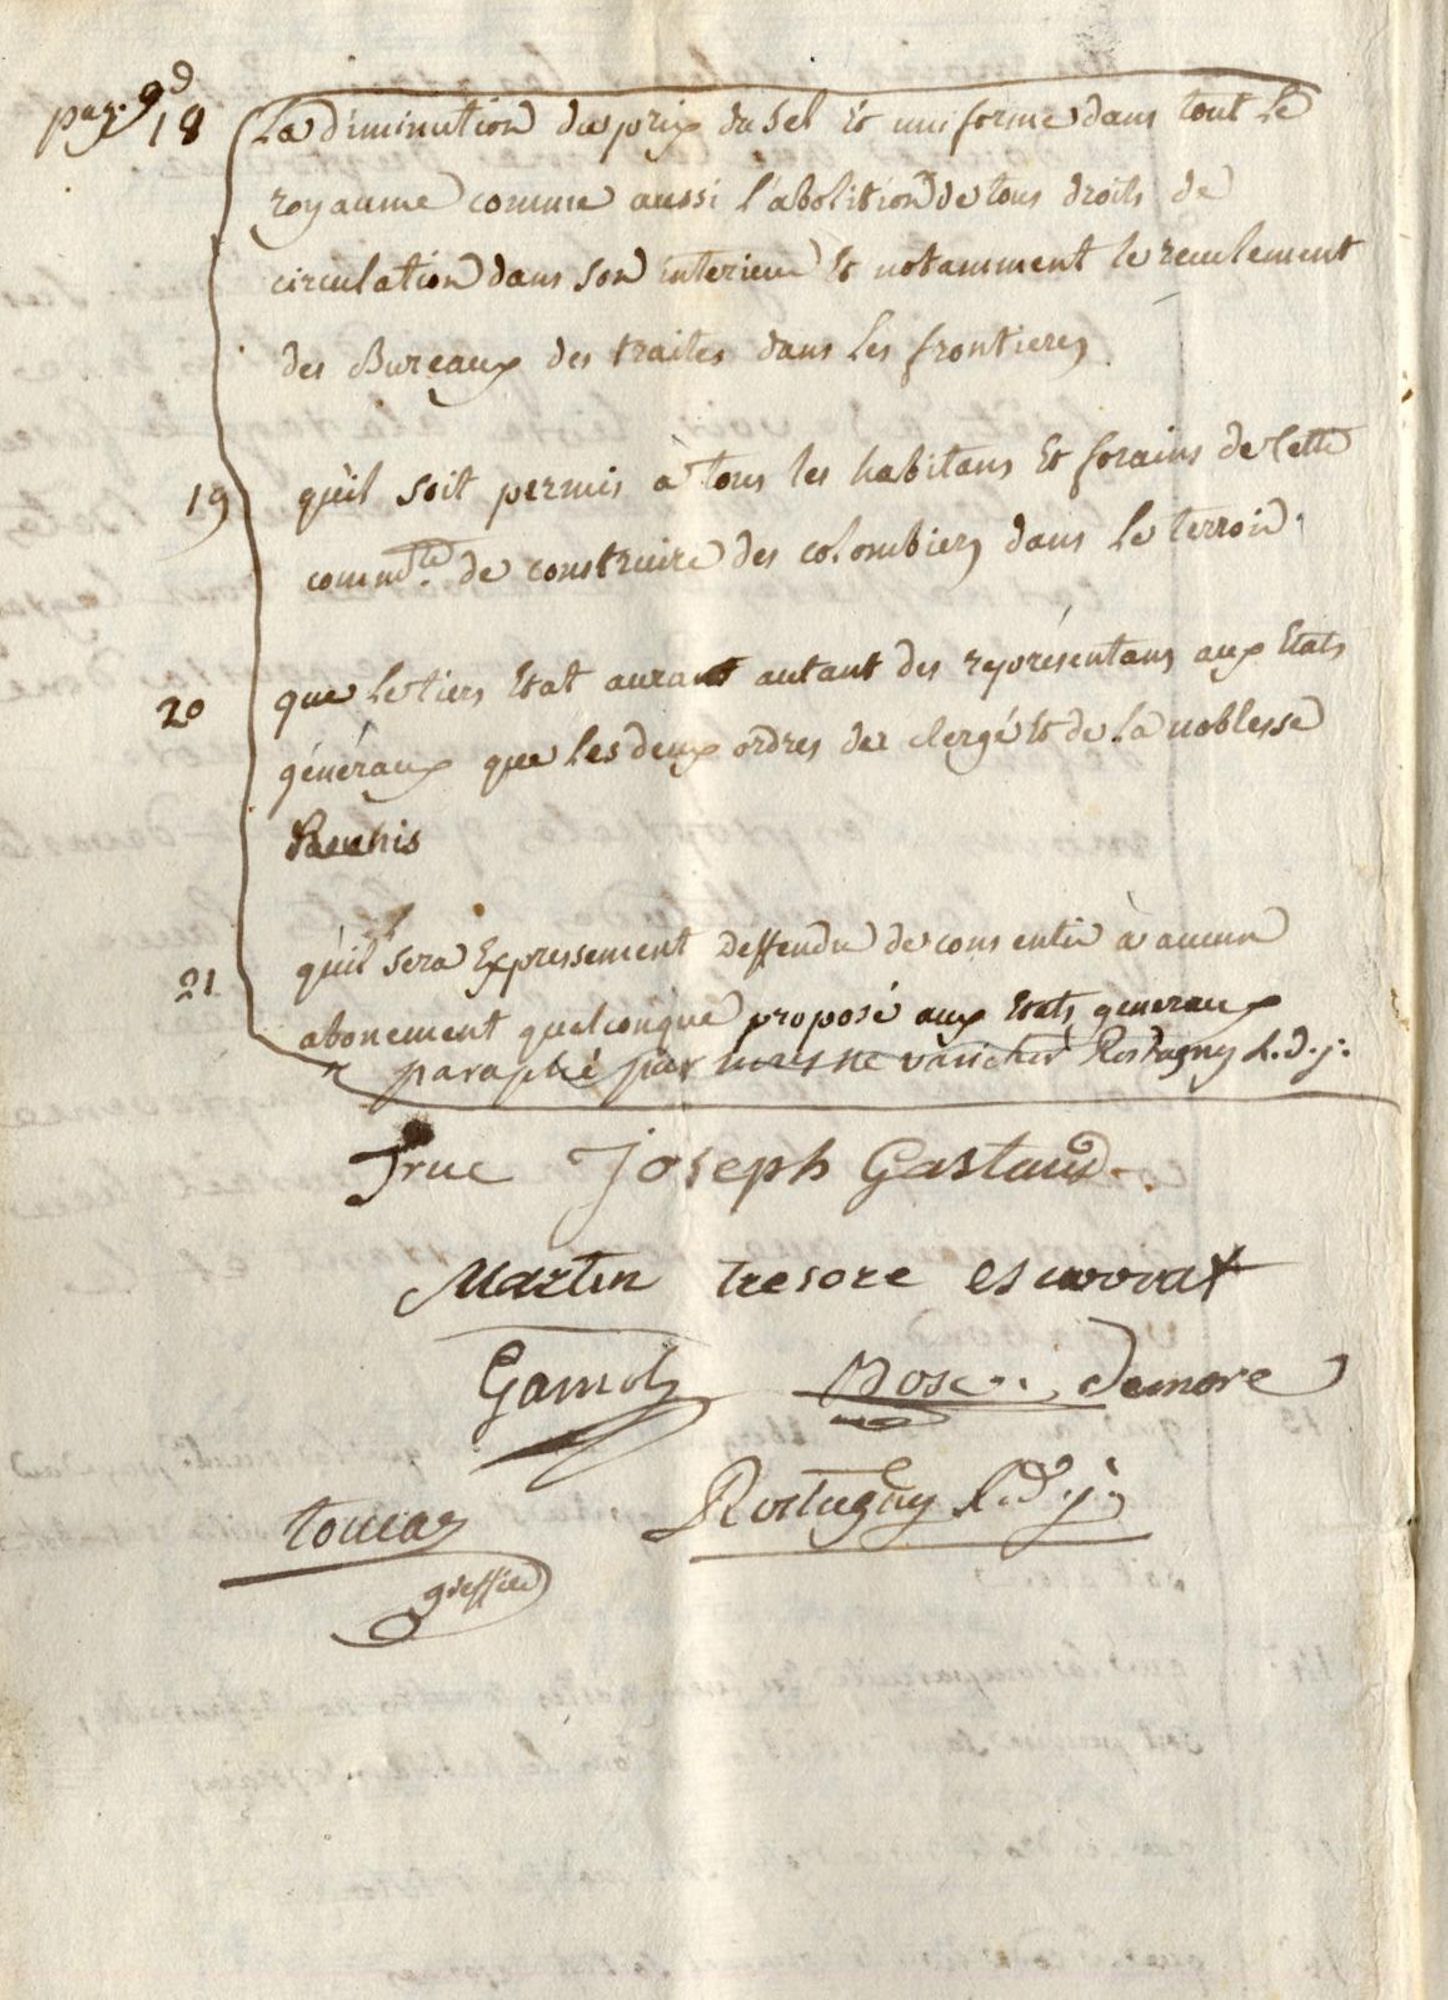 pag. 9
18 La diminution du prix du sel et uniforme dans tout le
royaume comme aussi l'abolition de tous droits de
circulation dans son interieur et notamment le reculement
des Bureaux des traites dans les frontieres
19 qu'il soit permis à tous les habitans et forains de cette
comm.té de construire des colombiers dans le terroir.
20 que le tiers Etat aura autant des représentans aux Etats
généraux que les deux ordres de clergé et de la noblesse
21 qu'il sera Expressement deffendu de consentir à aucun
abonement quelconque proposé aux Etats generaux
paraphé par ne varietur Rostagny L. d. j.
Truc Joseph Gastaud
Martin tresore escavorat
Gamot Demore
toucas Rostagny L. d. j.
greffier